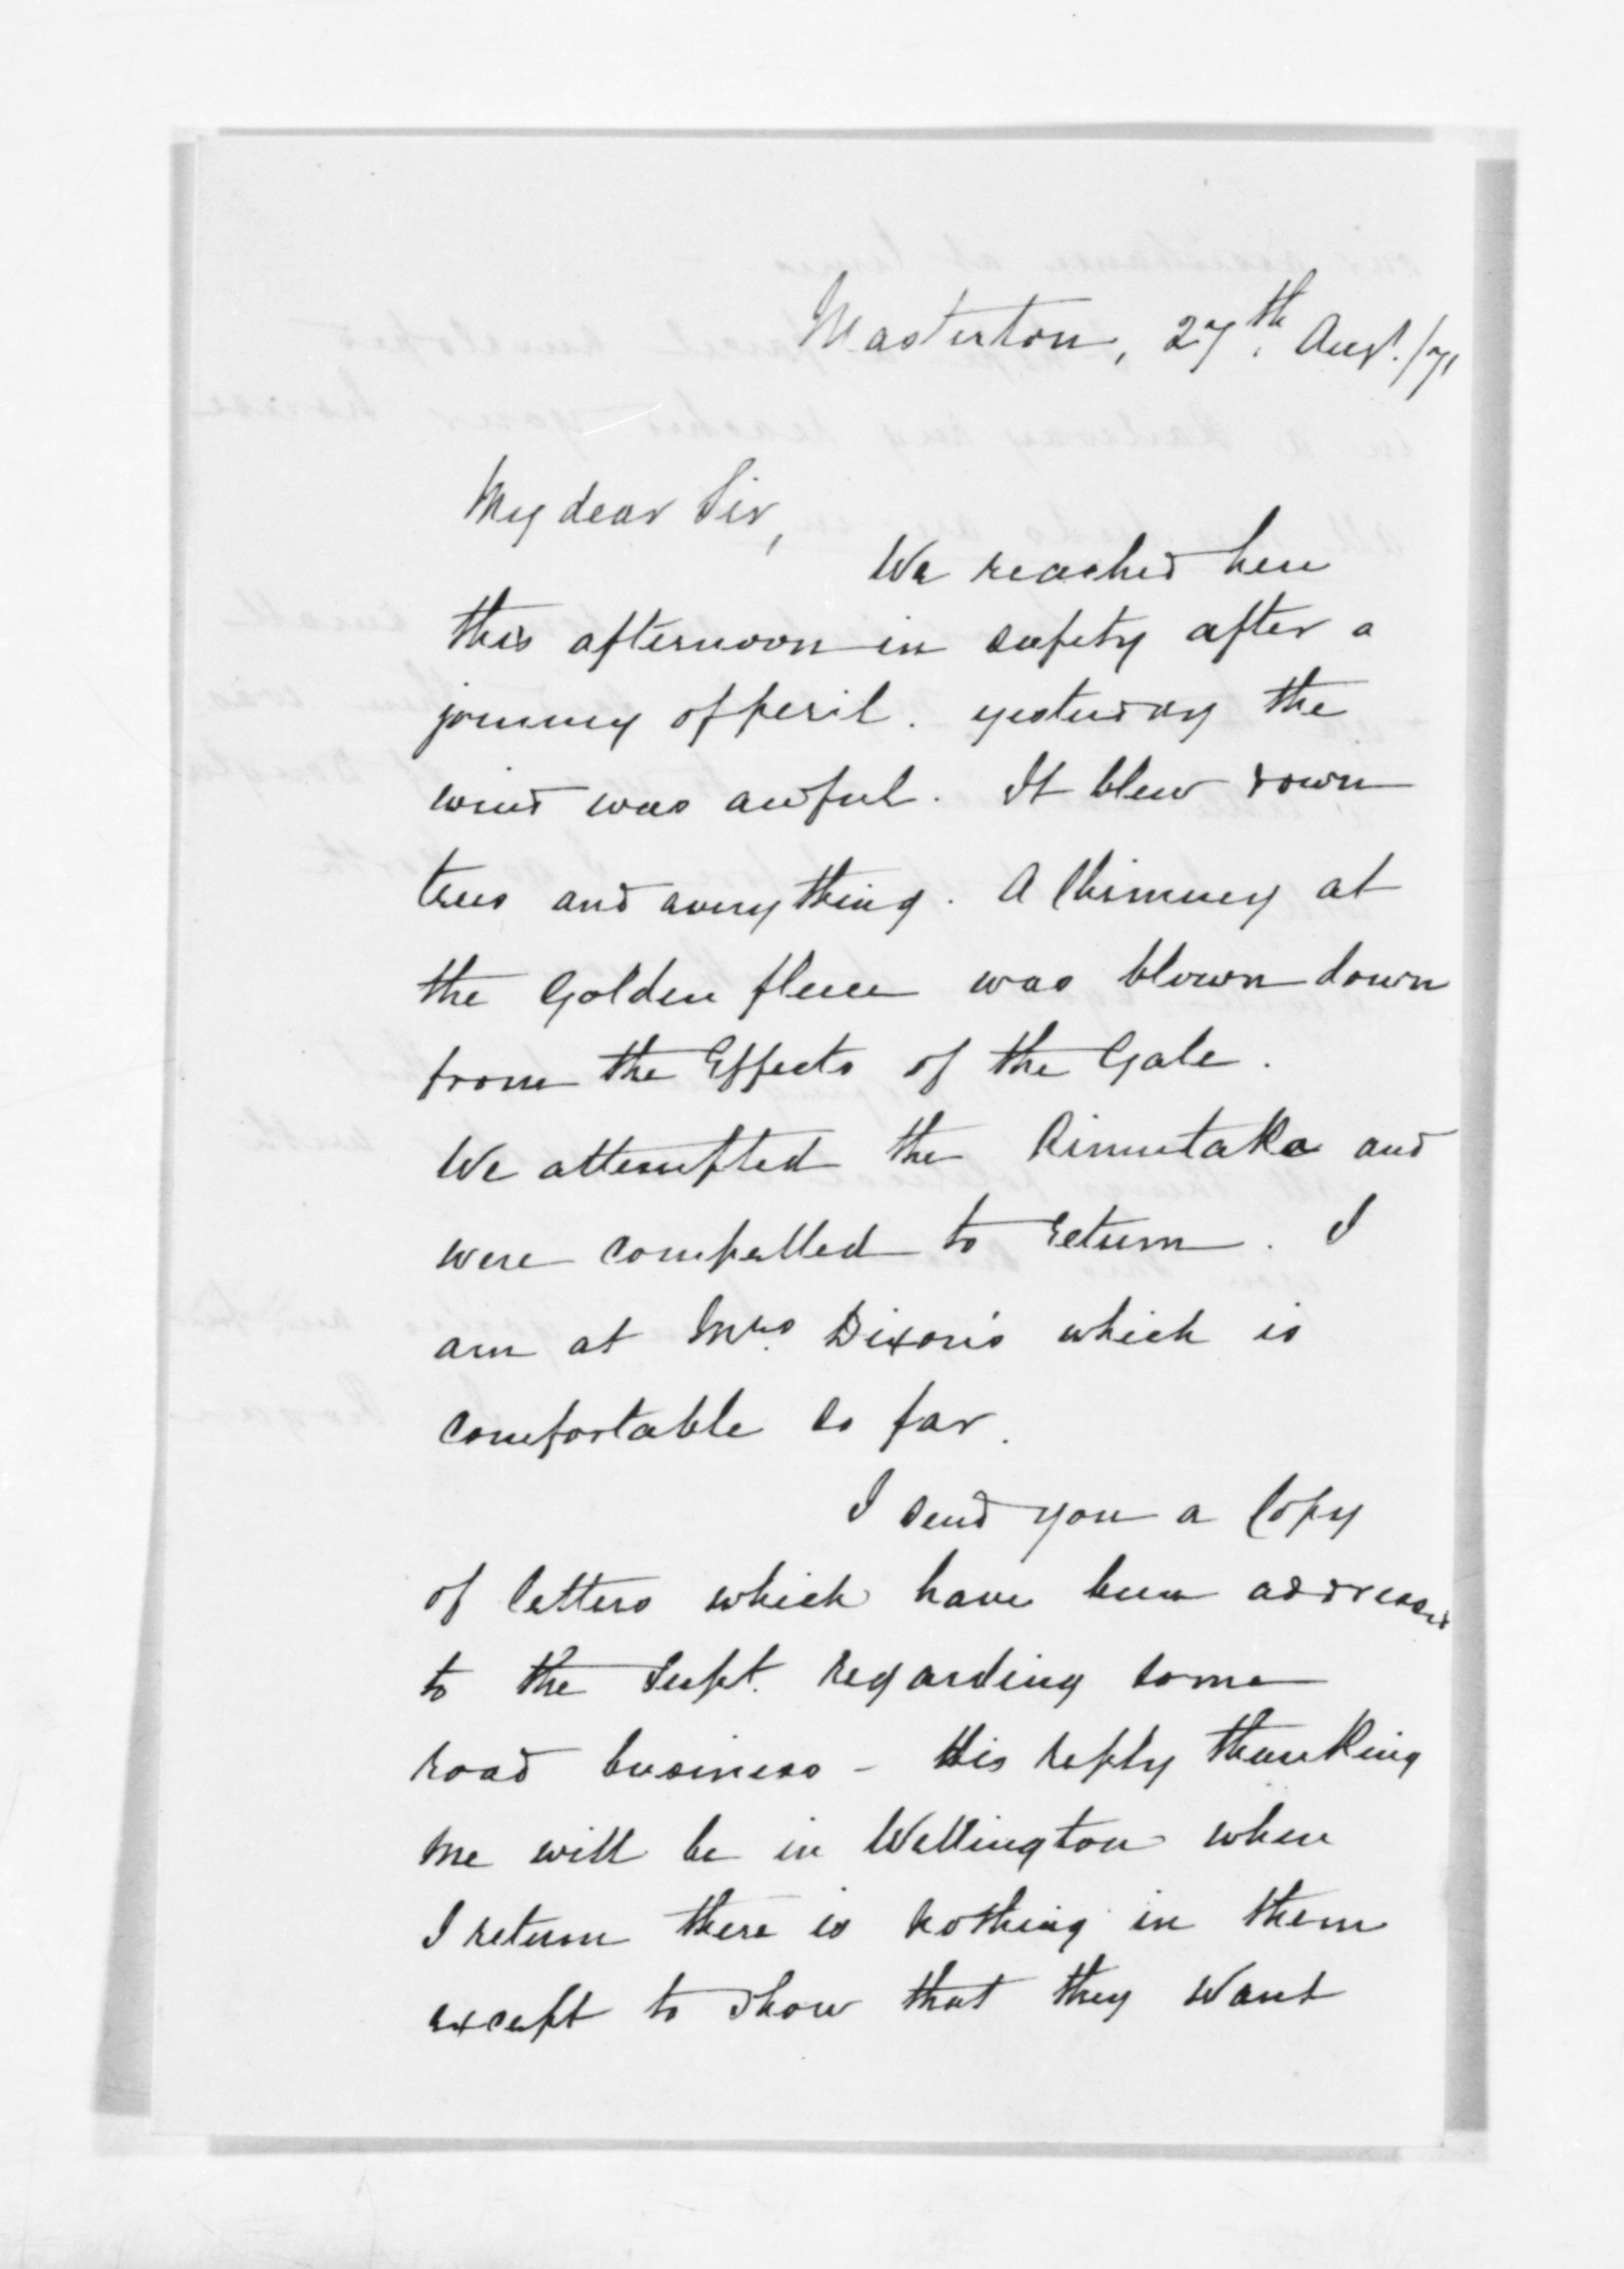 Masterton, 27th. Augt. /71
My dear Sir,
We reached here
this afternoon in safety after a
journey of peril. yesterday the
wind was awful. It blew down
trees and everything. A Chimney at
the Golden fleece was blown down
from the Effects of the Gale.
We attempted the Rimutaka and
were compelled to return. I
am at Mrs. Dixon's which is
comfortable so far.
I send you a Copy
of letters which have been addressed
to the Supt. regarding some
road business - His reply thanking
me will be in Wellington when
I return there is nothing in them
except to show that they want